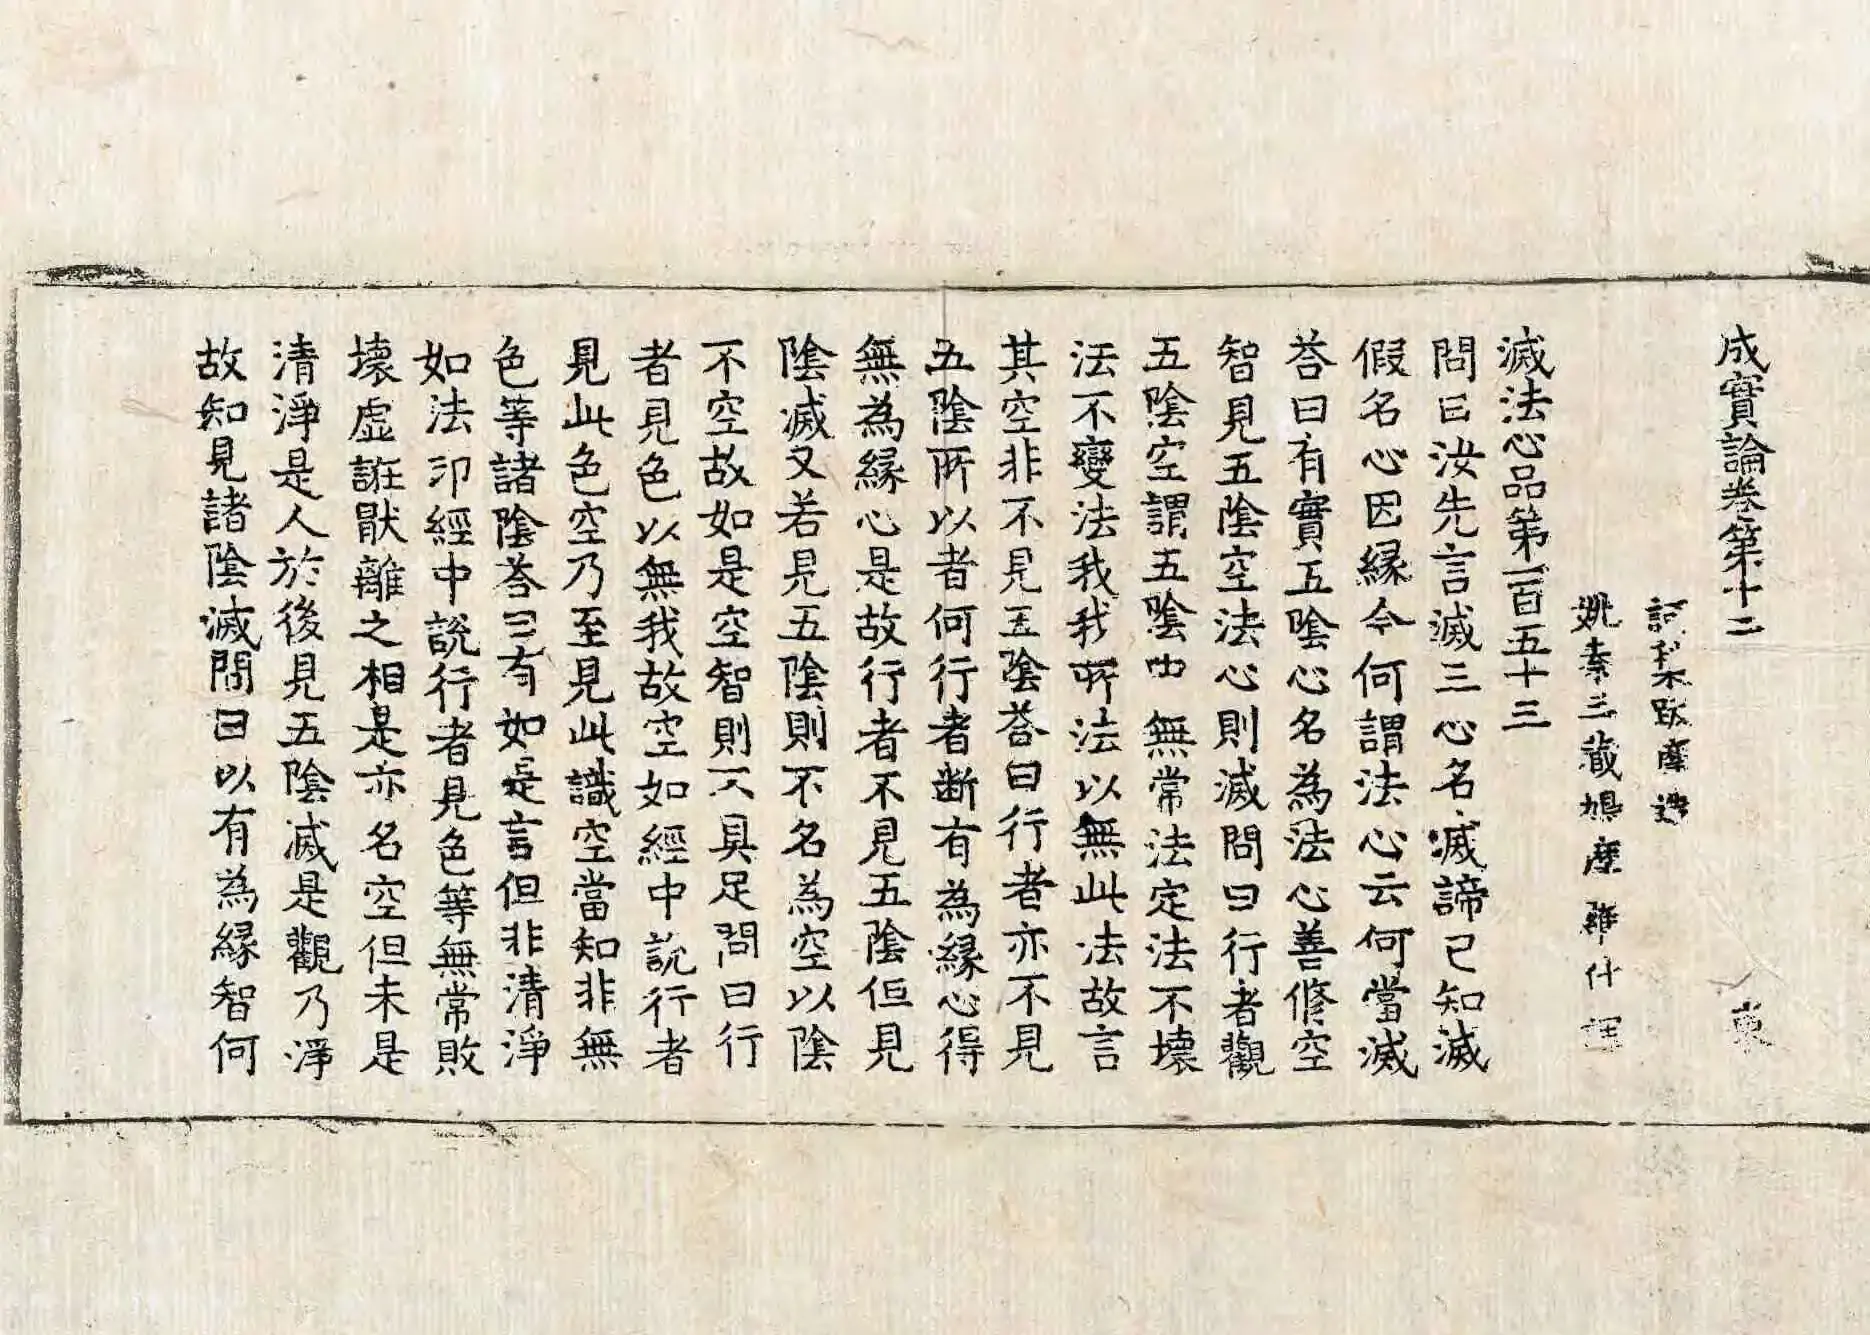 成實論卷第十二 東
訶梨跋摩造
姚秦三藏鳩摩羅什譯
滅法心品第一百五十三
問曰汝先言滅三心名滅諦已知滅
假名心因緣今何謂法心云何當滅
荅曰有實五陰心名為法心善修空
智見五陰空法心則滅問曰行者觀
五陰空謂五陰中無常法定法不壞
法不變法我我所法以無此法故言
其空非不見五陰荅曰行者亦不見
五陰所以者何行者断有為緣心得
無為緣心是故行者不見五陰但見
陰滅又若見五陰則不名為空以陰
不空故如是空智則不具足問曰行
者見色以無我故空如經中說行者
見此色空乃至見此識空當知非無
色等諸陰荅曰有如是言但非清淨
如法印經中說行者見色等無常敗
壞虛誑猒離之相是亦名空但未是
清淨是人於後見五陰滅是觀乃淨
故知見諸陰滅問曰以有為緣智何